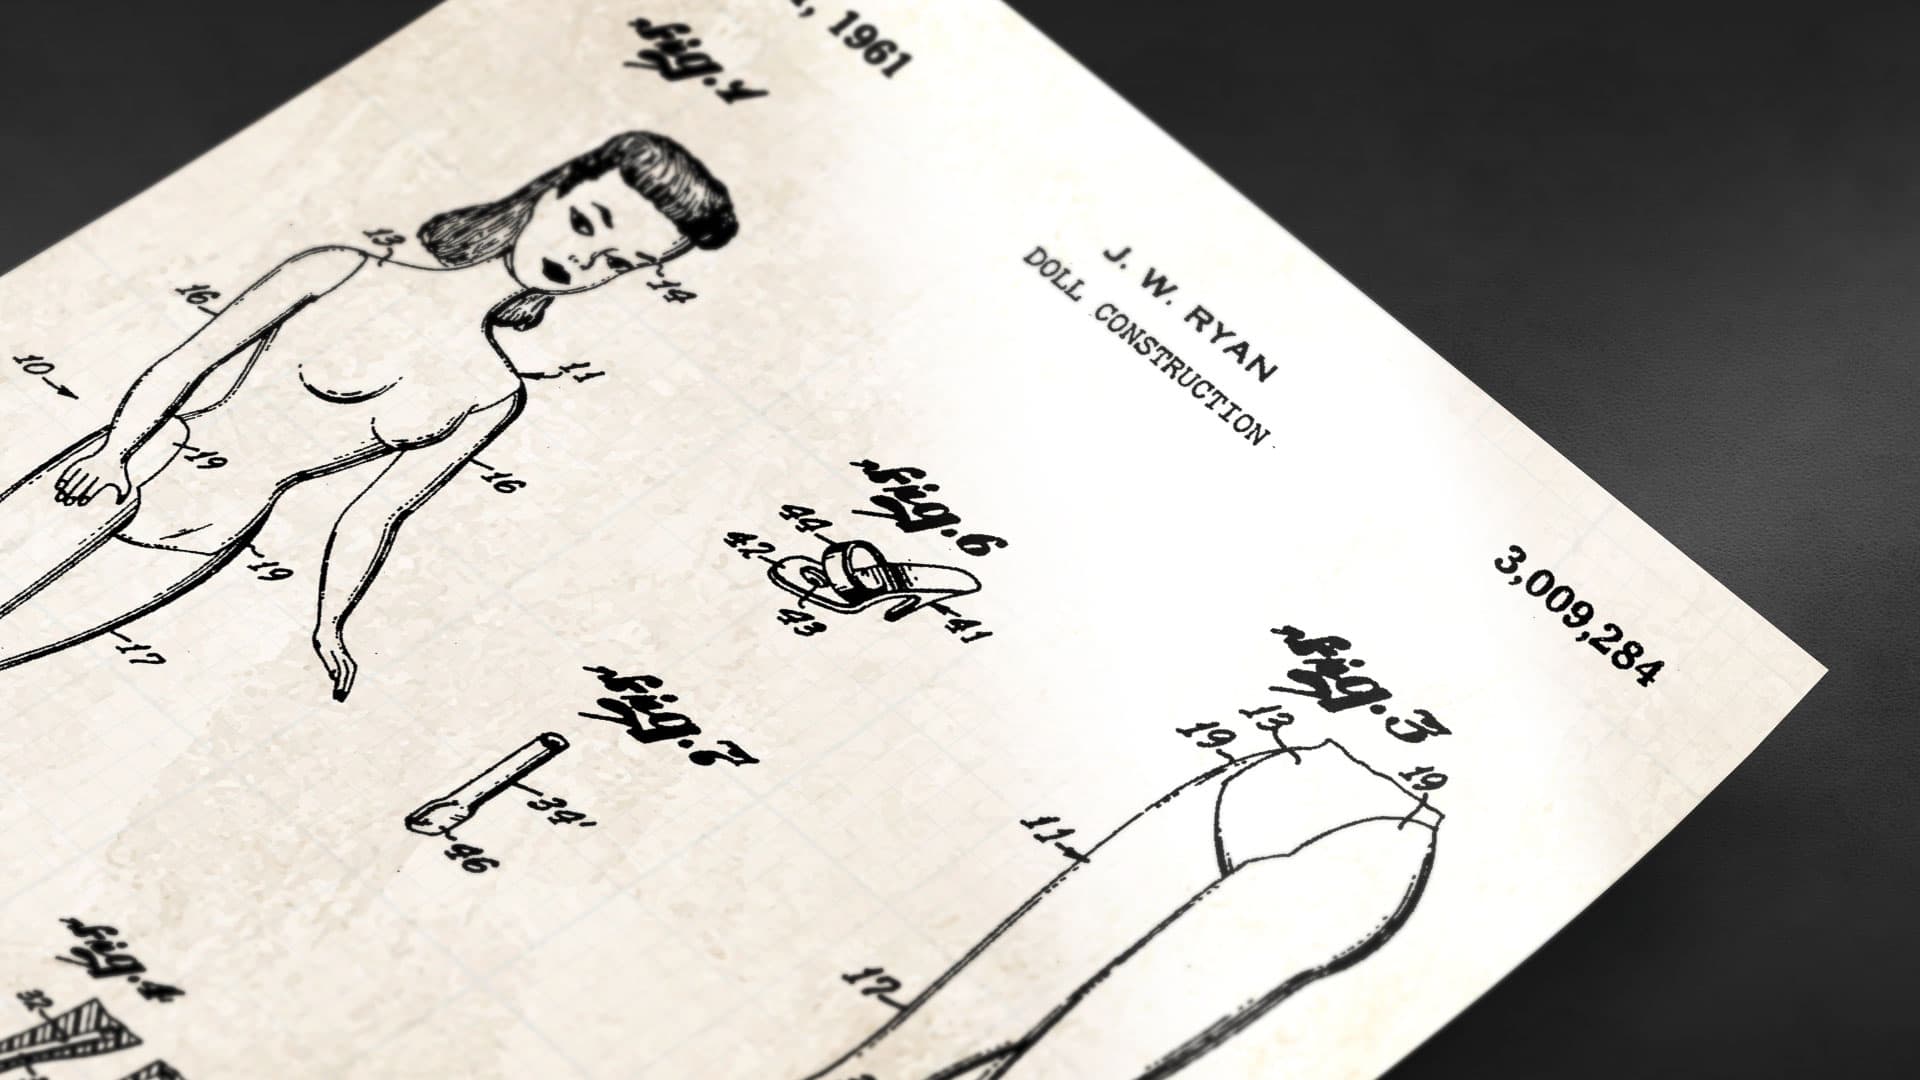 , 1961
J. W. RYAN
DOLL CONSTRUCTION
3,009,284
Fig.1
13
14
16
10
11
19
16
19
17
Fig.6
44
42
43
41
Fig.7
39'
46
Fig.3
13
19
19
11
17
Fig.4
32